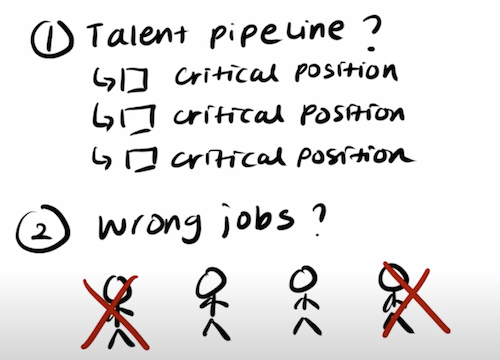 1 Talent pipeline?
critical position
critical position
critical position
2 wrong jobs?